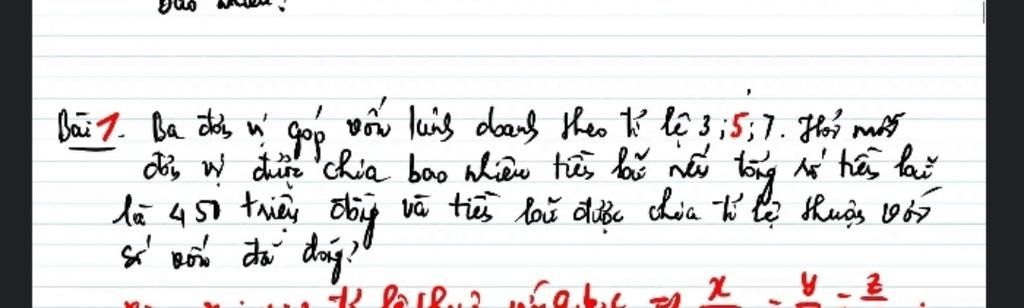 bao nhiêu?
Bài 1. Ba đơn vị góp vốn kinh doanh theo tỉ lệ 3;5;7. Hỏi mỗi
đơn vị được chia bao nhiêu tiền lãi nếu tổng số tiền lãi
là 450 triệu đồng và tiền lãi được chia tỉ lệ thuận với
số vốn đã đóng?
tỉ lệ a.b.c x = y = z